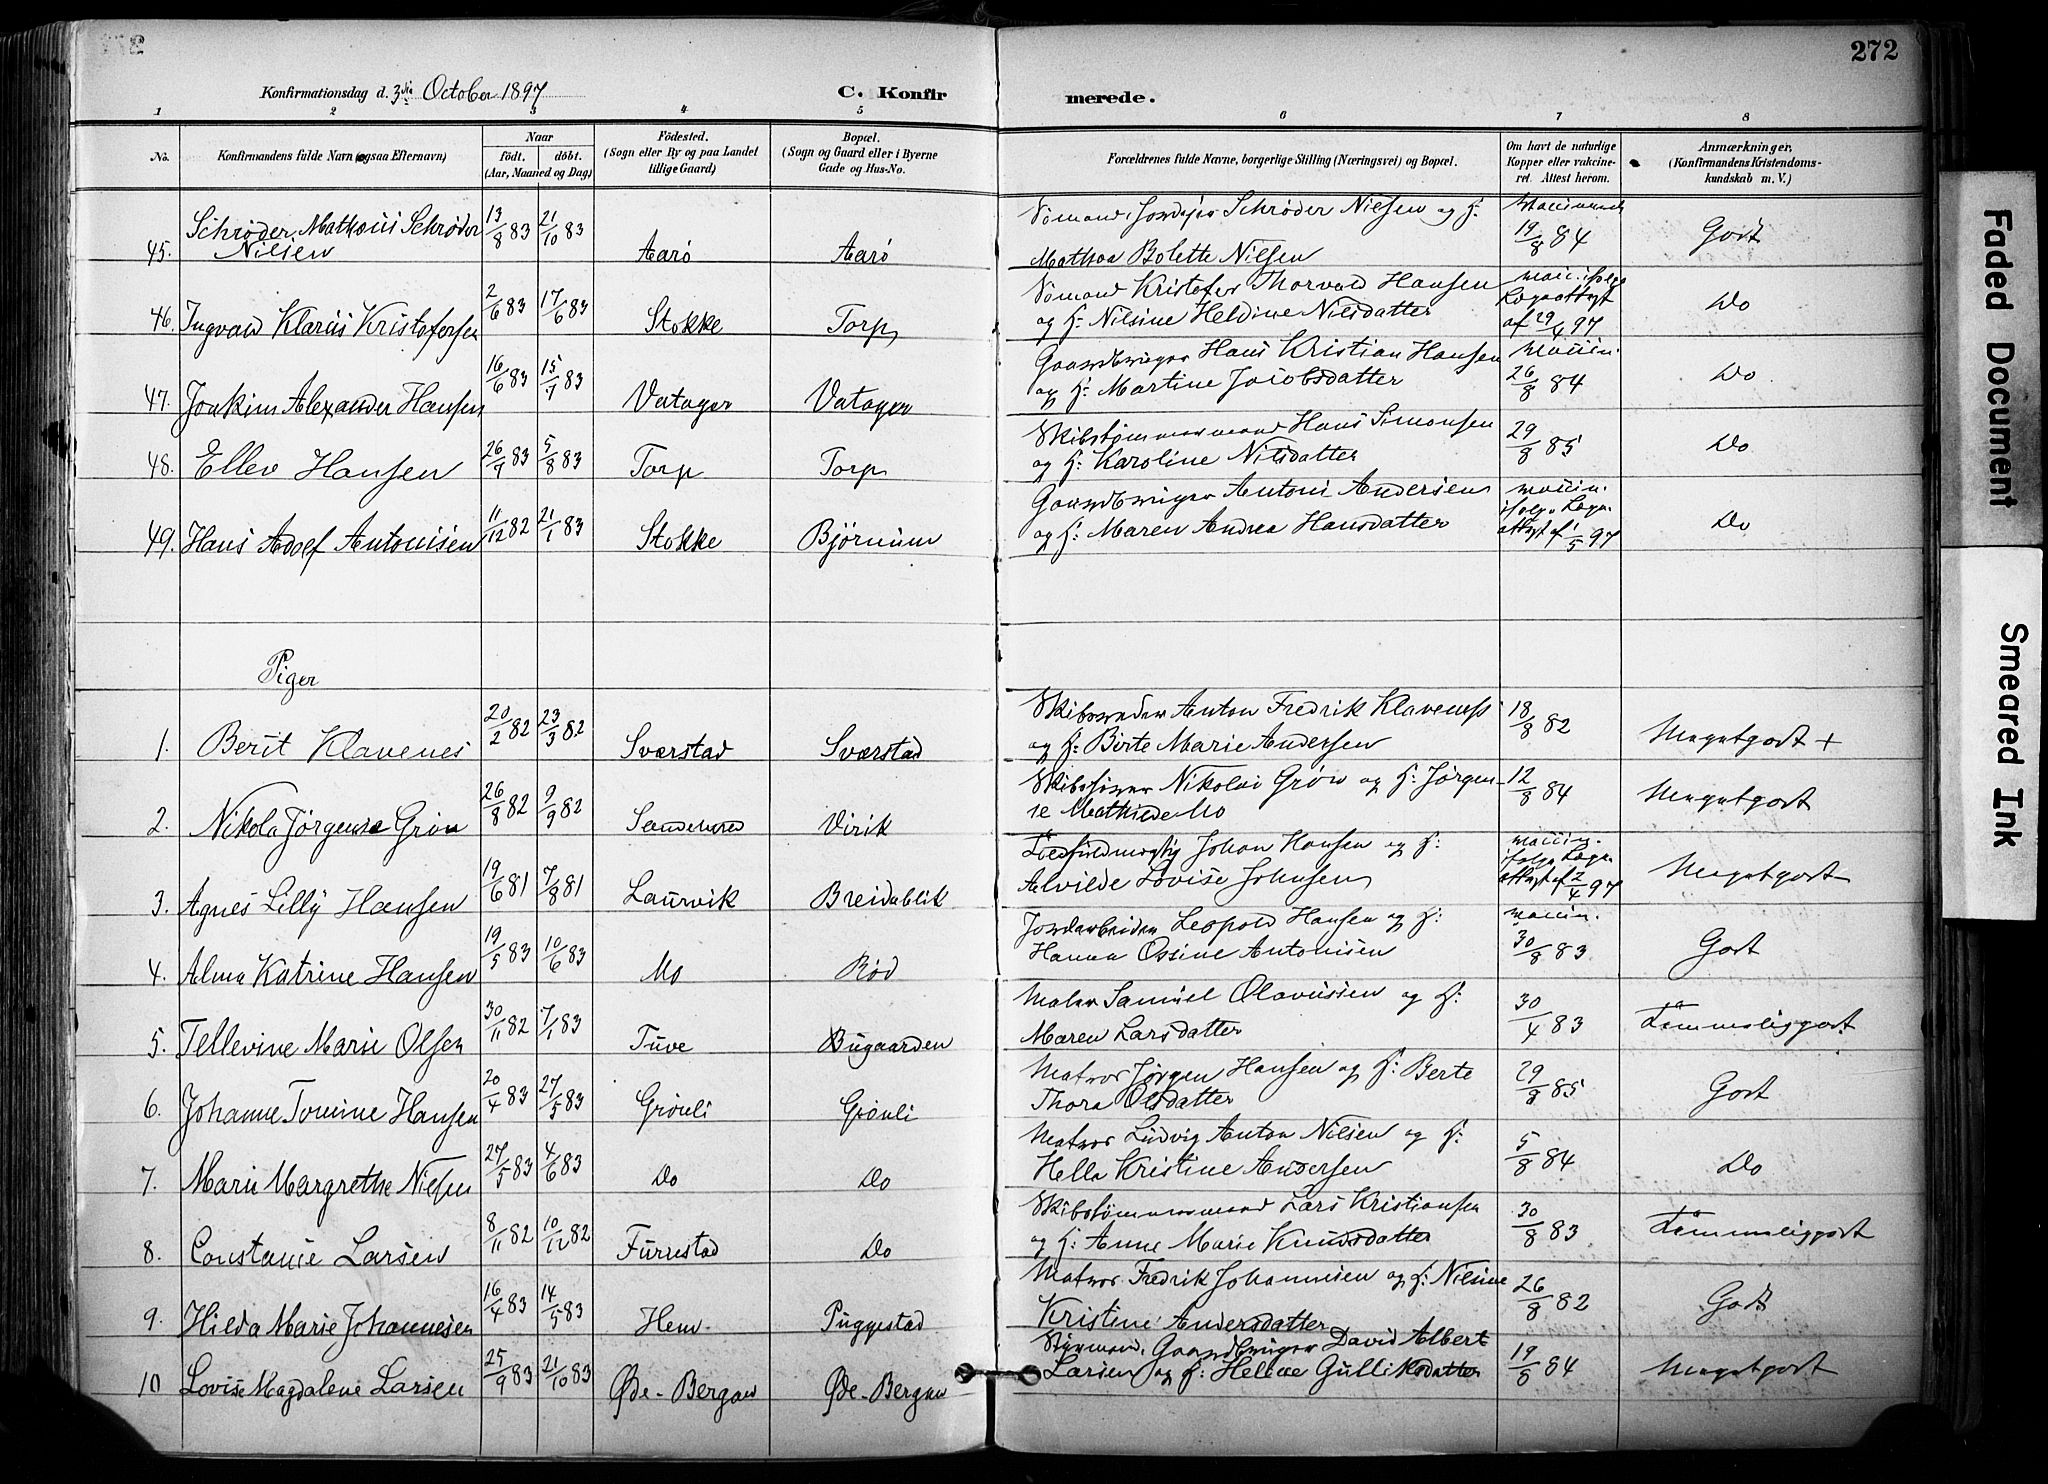 272
Konfirmationsdag d. 3die October 1897
C. Konfirmerede.
1 2 3 4 5 6 7 8
No.
Konfirmandens fulde Navn (ogsaa Efternavn)
Naar
födt. döbt.
(Aar, Maaned og Dag)
Födested.
(Sogn eller By og paa Landet tillige Gaard)
Bopæl.
(Sogn og Gaard eller i Byerne Gade og Hus-No.
Forældrenes fulde Navne, borgerlige Stilling (Næringsvei) og Bopæl.
Om havt de naturlige Kopper eller vakcineret. Attest herom.
Anmærkninger.
(Konfirmandens Kristendomskundskab m. V.)
45. Schrøder Mathæus Schrøder Nilsen 13/8 83 21/10 83 Aarø Aarø Sømand Schrøder Nielsen og H: Mathea Bolette Nilsen 19/8 84 Godt
46. Ingvald Klarius Kristofersen 2/6 83 17/6 83 Stokke Torp Sømand Kristofer Thorvald Hansen og H: Nilsine Heldine Nilsdatter vacc. ifølge Lægeattest af 29/4 97 Do
47. Joakim Alexander Hansen 16/6 83 15/7 83 Vatager Vatager Gaardbruger Hans Kristian Hansen og H: Martine Jacobsdatter vaccin. 26/8 84 Do
48. Ellev Hansen 26/7 83 5/8 83 Torp Torp Skibstømmermand Hans Simonsen og H: Karoline Nilsdatter 29/8 85 Do
49. Hans Adolf Antonisen 11/12 82 21/1 83 Stokke Bjørnum Gaardbruger Antoni Andersen og H: Maren Andrea Hansdatter vaccin. ifølge Læge attest af 1/5 97 Do
Piger
1. Berit Klavenes 20/2 82 23/3 82 Sværstad Sværstad Skibsreder Anton Fredrik Klavenes og H: Birte Marie Andersen 18/8 82 Megetgodt +
2. Nikola Jørgense Grøn 26/8 82 9/9 82 Sandeherred Virik Skibsfører Nikolai Grøn og H: Jørgense Mathilde Mo 12/8 84 Megetgodt
3. Agnes Lilly Hansen 19/6 81 7/8 81 Laurvik Breidablik Johan Hansen og H: Alvilde Lovise Johnsen vaccin. ifølge Læge attest af 2/4 97 Megetgodt
4. Alma Katrine Hansen 19/5 83 10/6 83 Mo Rød Jordarbeider Leopold Hansen og H: Hanna Ossine Antonisen vaccin. 30/8 83 Godt
5. Tellevine Marie Olsen 30/11 82 7/1 83 Tuve Bugaarden Maler Samuel Olavussen og H: Maren Larsdatter 30/4 83 Temmeliggodt
6. Johanne Tomine Hansen 20/4 83 27/5 83 Grønli Grønli Matros Jørgen Hansen og H: Berte Thora Olsdatter 29/8 85 Godt
7. Marie Margrethe Nilsen 27/5 83 4/6 83 Do Do Matros Ludvig Anton Nilsen og H: Hella Kristine Andersen 5/8 84 Do
8. Constanse Larsen 8/11 82 10/12 82 Furustad Do Skibstømmermand Lars Kristiansen og H: Anne Marie Knudsdatter 30/8 83 Temmeliggodt
9. Hilda Marie Johannesen 16/4 83 14/5 83 Hem Puggestad Matros Fredrik Johannesen og H: Nilsine Kristine Andersdatter 26/8 82 Godt
10 Lovise Magdalene Larsen 25/9 83 21/10 83 Øde-Bergan Øde-Bergan Styrmand, Gaardbruger David Albert Larsen og H: Helene Gulliksdatter 19/5 84 Megetgodt
Faded Document
Smeared Ink